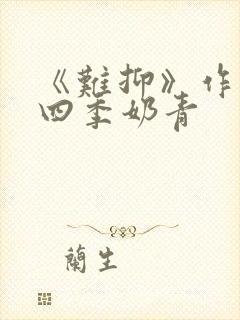 《難抑》作
四季奶青
蘭生